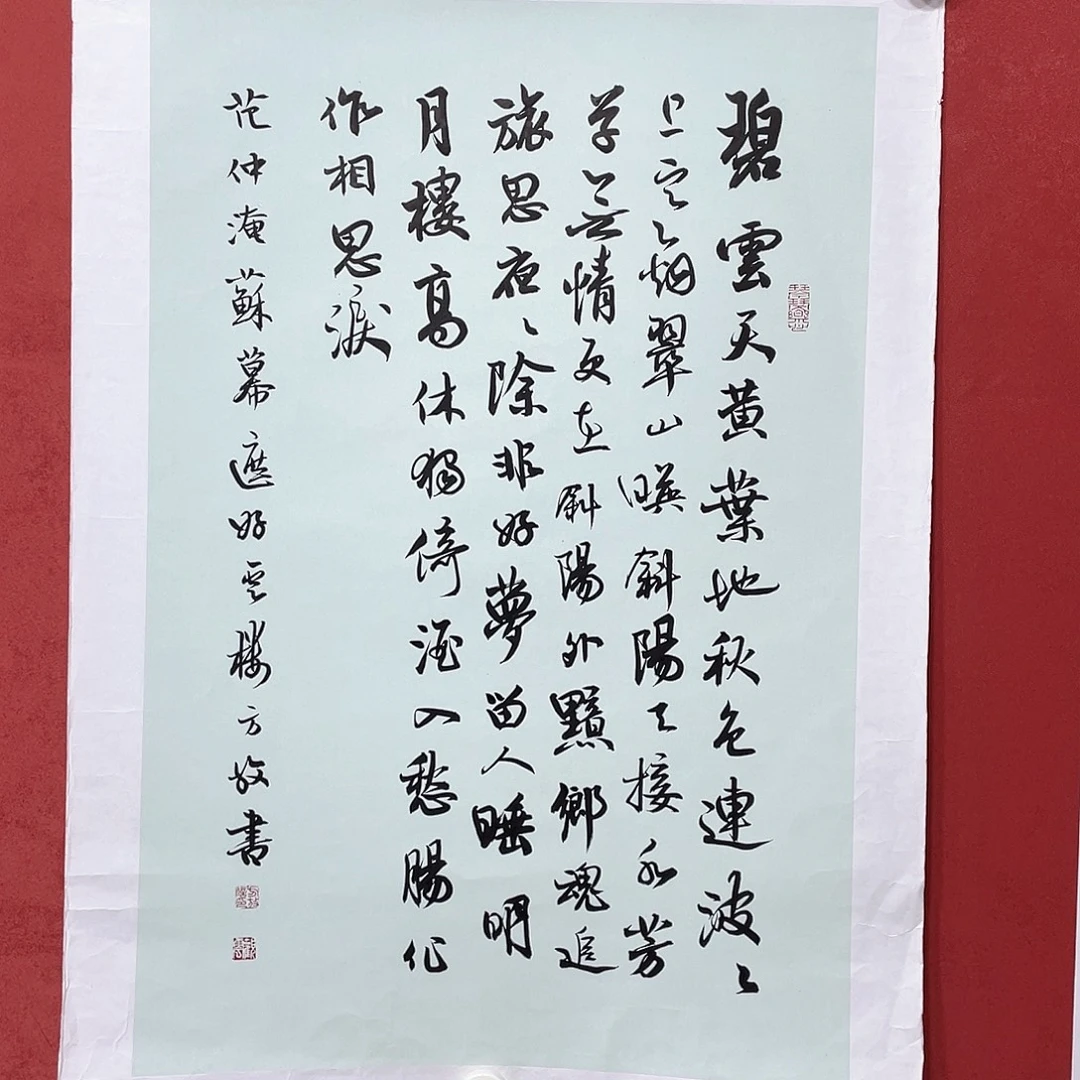 碧雲天黄葉地秋色連波〻
上寒〻烟翠山暎斜陽天接水芳
草無情更在斜陽外黯鄉魂追
旅思夜〻除非好夢留人睡明
月樓高休獨倚酒入愁腸化
作相思淚
范仲淹蘇幕遮好雲楼方書